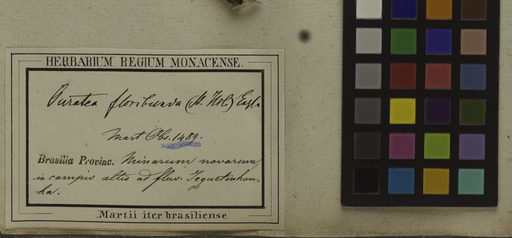 HERBARIUM REGIUM MONACENSE.
Ouratea floribunda (St. Hil.) Engl.
Mart. Obs. 1489.
Brasilia Provinc. Minarum novarum,
in campis altis ad fluv. Jequetinhon-
ha.
Martii iter brasiliense.